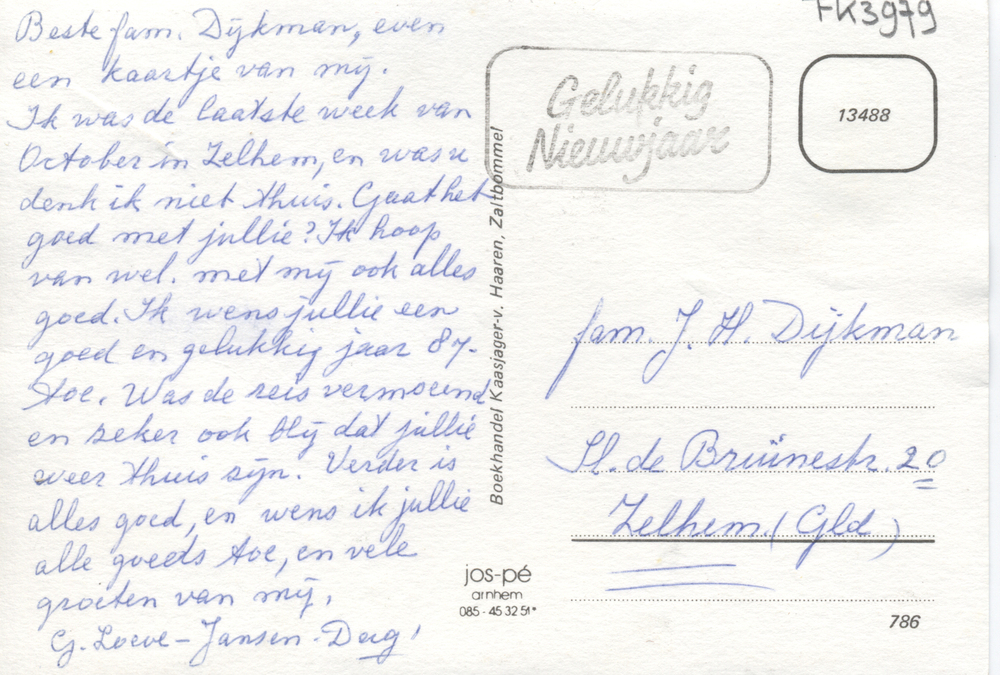 Beste fam. Dijkman, even
een kaartje van mij.
Ik was de laatste week van
October in Zelhem, en was u
denk ik niet thuis. Gaat het
goed met jullie? Ik hoop
van wel. met mij ook alles
goed. Ik wens jullie een
goed en gelukkig jaar 87-
toe. Was de reis vermoeend
en zeker ook blij dat jullie
weer thuis zijn. Verder is
alles goed, en wens ik jullie
alle goeds toe, en vele
groeten van mij,
G. Loeve-Jansen-Dag!
Boekhandel Kaasjager-v. Haaren, Zaltbommel
jos-pé
arnhem
085 - 45 32 51*
FK3979
Gelukkig
Nieuwjaar
13488
fam. J. H. Dijkman
Sl. de Bruïnestr. 20
Zelhem (Gld)
786